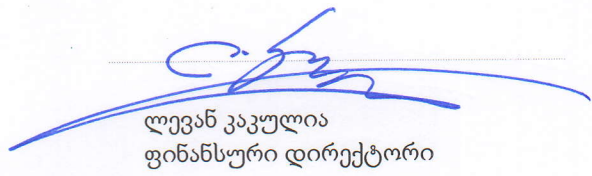 ლევან კაკულია
ფინანსური დირექტორი